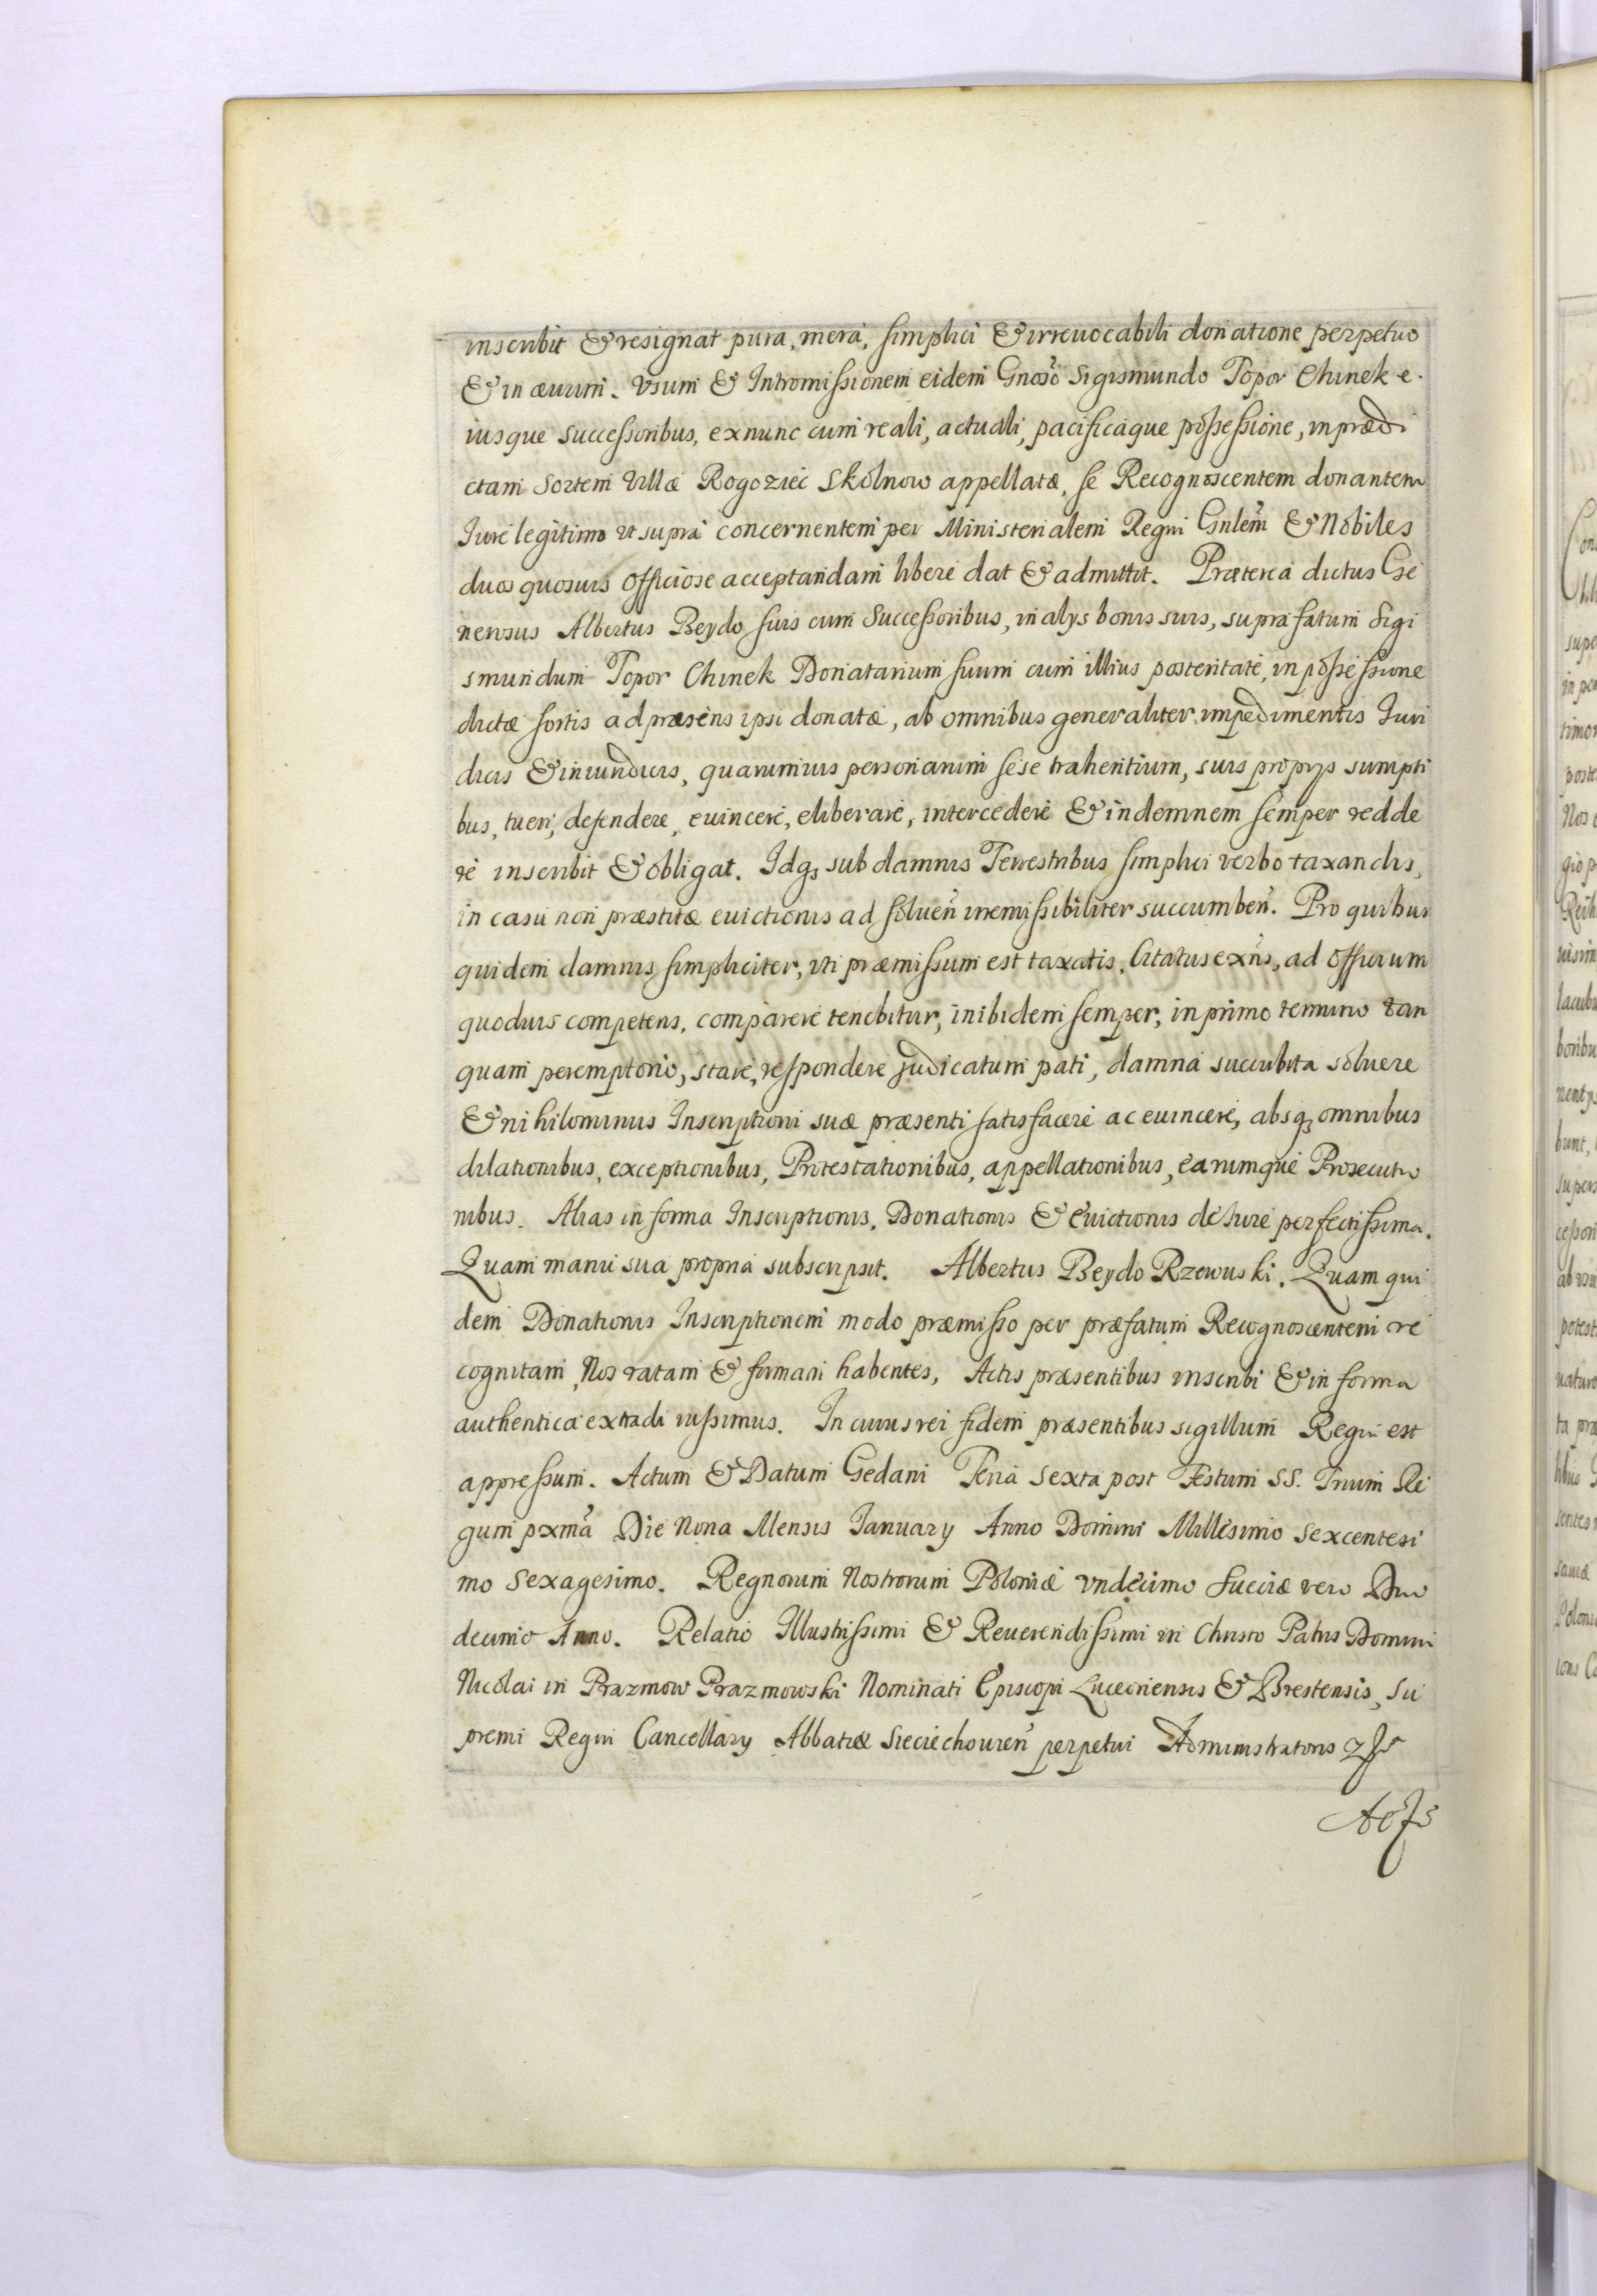 inscribit & resignat pura, mera, simplici & irreuocabili donatione perpetuo
& in æuum. Vsum & Intromissionem eidem Gnoso Sigismundo Topor Chinek e.
iusque successoribus, ex nunc cum reali, actuali, pacificaque possessione, in prædi
ctam Sortem Villæ Rogoziec Skolnow appellatæ, se Recognoscentem donantem
Iure legitimo vt supra concernentem per Ministerialem Regni Gnlem & Nobiles
duos quosuis officiose acceptandam libere dat & admittit. Præterea dictus Ge
nerosus Albertus Beydo suis cum Successoribus, in alys bonis suis, suprafatum Sigi
smundum Topor Chinek Donatarium suum cum illius posteritate, in possessione
dictæ sortis ad præsens ipsi donatæ, ab omnibus generaliter impedimentis Iuri
dicis & iniundicis, quarumuis personarum sese trahentium, suis proprys sumpti
bus, tueri, defendere, euincere, eliberare, intercedere & indemnem semper redde
re inscribit & obligat. Idq; sub damnis Terrestribus simplici verbo taxandis,
in casu non præstitæ euictionis ad soluen irremissibiliter succumben. Pro quibus
quidem damnis simpliciter, vti præmissum est taxatis. Citatus exns, ad officium
quoduis competens, comparere tenebitur, inibidem semper, in primo termino tan
quam peremptorio, stare, respondere judicatum pati, damna succubita soluere
& nihilominus Inscriptioni suæ præsenti satisfacere ac euincere, absq; omnibus
dilationibus, exceptionibus, Protestationibus, appellationibus, earumque Prosecutio
nibus. Alias in forma Inscriptionis, Donationis & Euictionis de Iure perfectissima.
Quam manu sua propria subscripsit. Albertus Beydo Rzewuski. Quam qui
dem Donationis Inscriptionem modo præmisso per præfatum Recognoscentem re
cognitam, Nos ratam & firmam habentes, Actis præsentibus inscribi & in forma
authentica extradi iussimus. In cuius rei fidem præsentibus sigillum Regni est
appressum. Actum & Datum Gedani Feria Sexta post Festum SS. Trium Re
gum pxma Die Nona Mensis January Anno Domini Millesimo Sexcentesi
mo Sexagesimo. Regnorum Nostrorum Poloniæ vndecimo Sueciæ vero Duo
decimo Anno. Relatio Illustrissimi & Reuerendissimi in Christo Patris Domini
Nicolai in Prazmow Prazmowski Nominati Episcopi Luceoriensis & Brestensis, Su
premi Regni Cancellary Abbatiæ Sieciechouien perpetui Administratoris